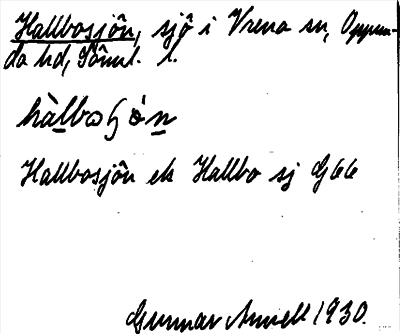 Hallbosjön, sjö i Vrena sn, Oppun-
da hd, Söml. l.
hàlbosjö́n
Hallbosjön ek Hallbo sj G66
Gunnar Annell 1930.